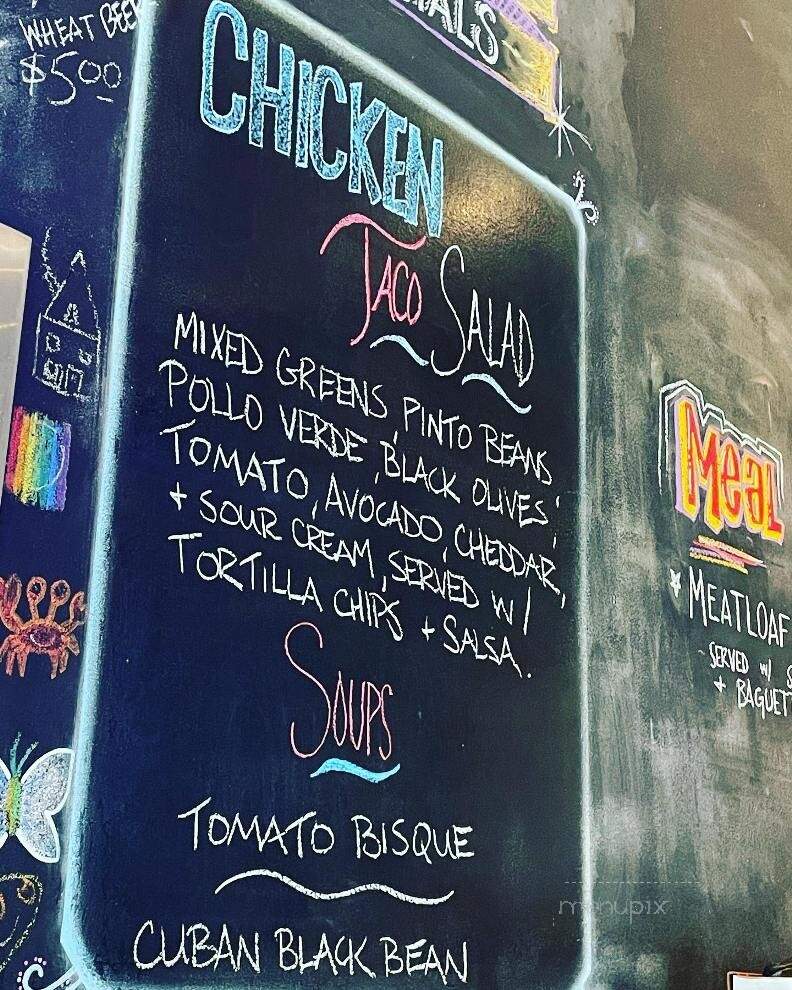 WHEAT BEER
$5.00
CHICKEN
TACO SALAD
MIXED GREENS, PINTO BEANS
POLLO VERDE, BLACK OLIVES,
TOMATO, AVOCADO, CHEDDAR,
+ SOUR CREAM, SERVED W/
TORTILLA CHIPS + SALSA.
SOUPS
TOMATO BISQUE
CUBAN BLACK BEAN
Meal
MEATLOAF
- SERVED W/
+ BAGUET
menupix